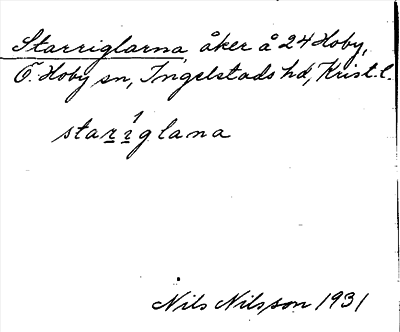 Starriglarna, åker å 24 Hoby,
Ö. Hoby sn, Ingelstads hd, Krist. l.
starı̣glana
Nils Nilsson 1931